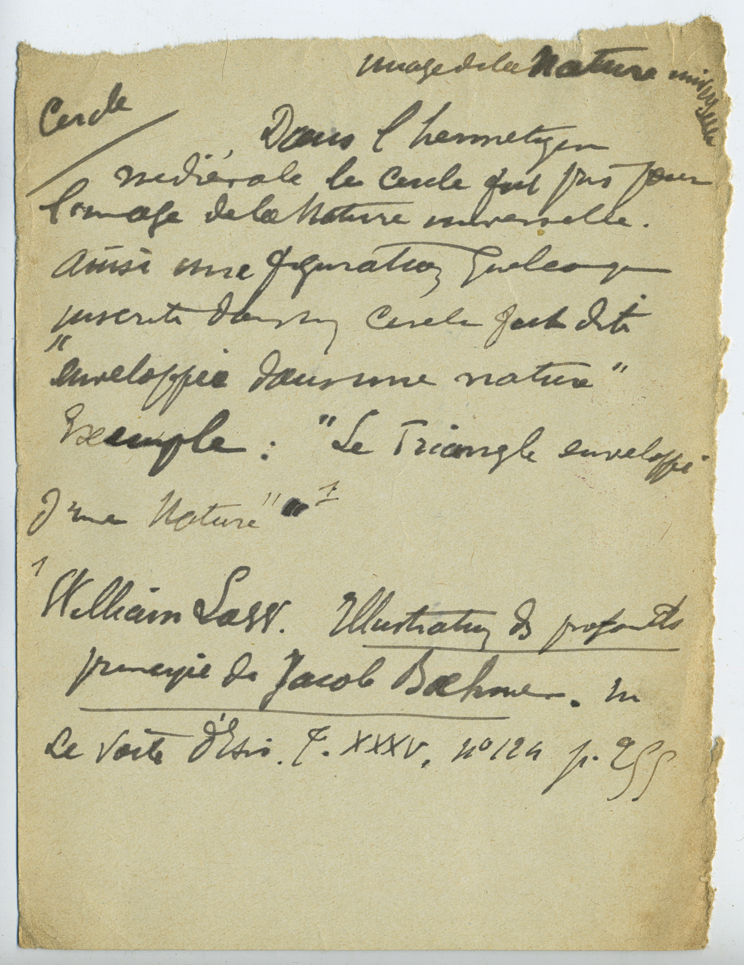 image de la Nature universelle
Cercle
Dans l'hermetysm
médiévale le cercle fut pris pour
l'image de la Nature universelle.
Ainsi une figuration quelconque
inscrite dans un cercle fut dite
"enveloppée dans une nature"
Exemple : "Le Triangle enveloppé
d'une Nature" 1
1 William Law. Illustration des profonds
principes de Jacob Bœhme. in
Le Voile d'Isis. T. XXXV, n° 124 p. 255